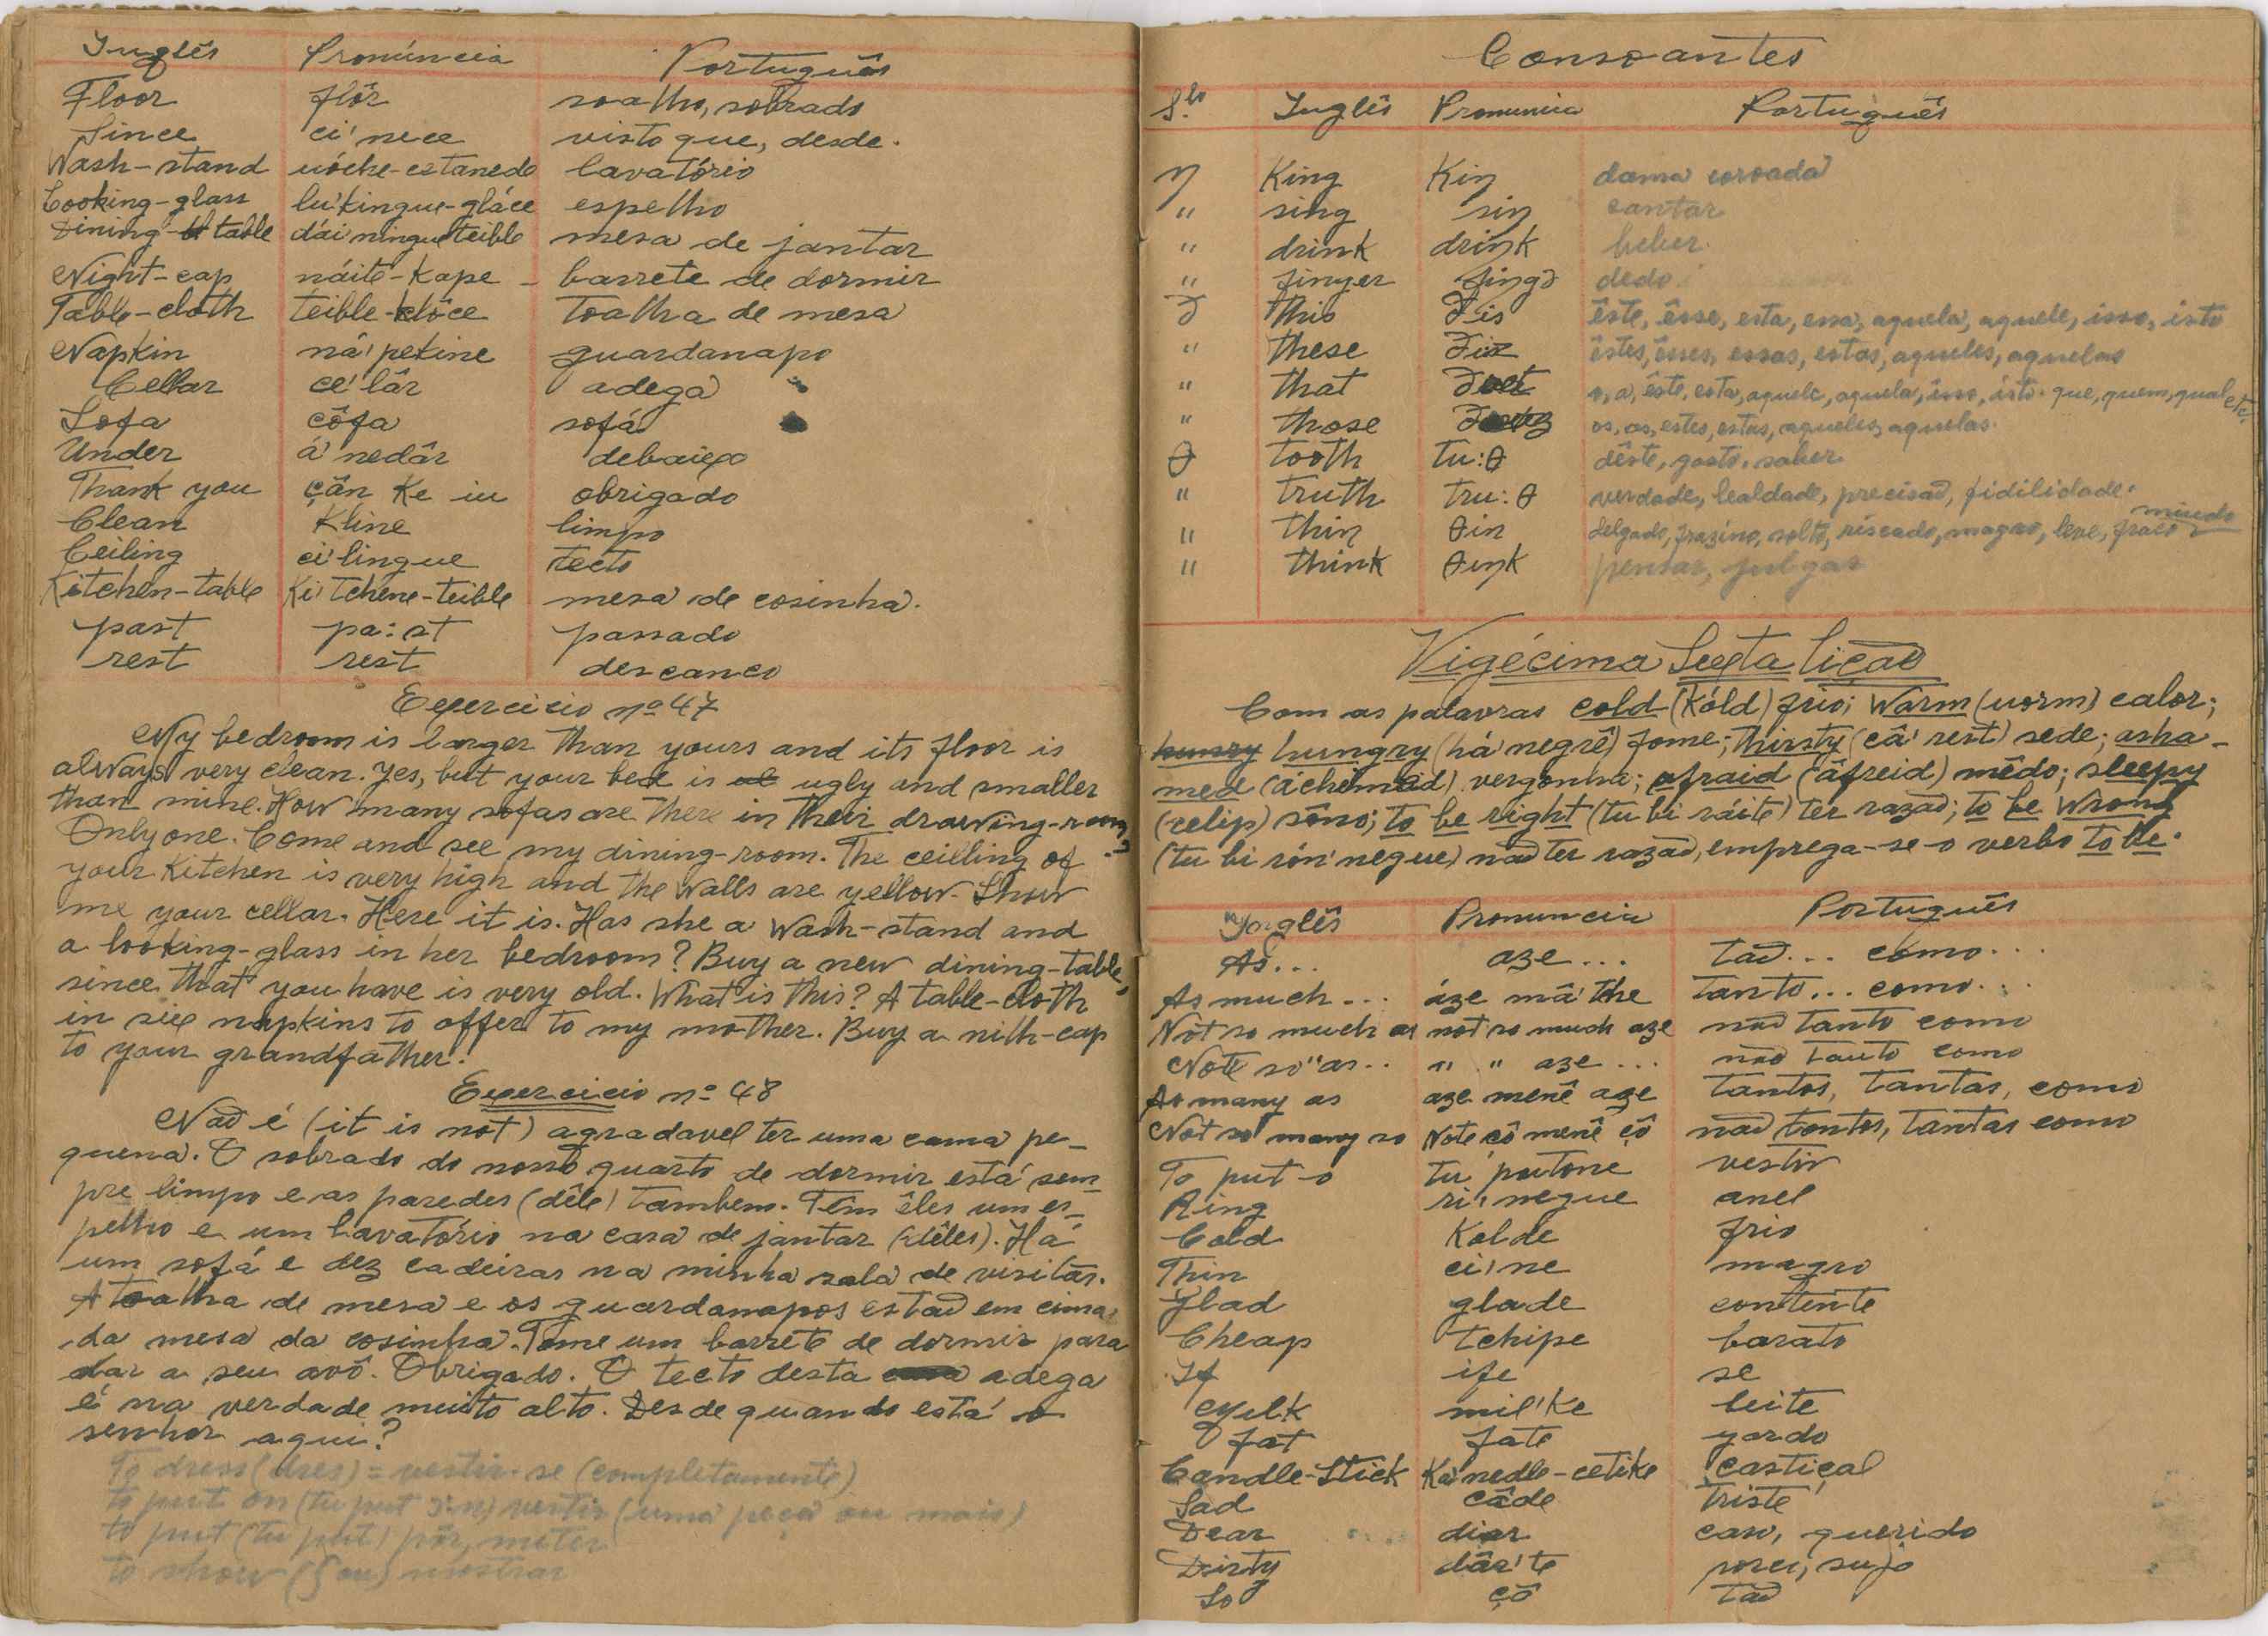 Inglês Pronúncia Português
Floor flôr soalho, sobrado
Since ci'nece visto que, desde.
Wash-stand uóche-estanedo lavatório
Looking-glass lu'kingue-gláce espelho
Dining-table dái ningue teible mesa de jantar
Night-cap náite-kape - barrete de dormir
Table-cloth teible-clôce toalha de mesa
Napkin ná'pekine guardanapo
Cellar ce'lâr adega
Sofa côfa sofá
Under á'nedâr debaixo
Thank you çân ke iu obrigado
Clean kline limpo
Ceiling ci'lingue tecto
Kitchen-table Ki'tchene-teible mesa de cosinha.
past pa:st passado
rest rest descanco
Exercicio nº 47
My bedroom is larger than yours and its floor is
always very clean. Yes, but your bed is ugly and smaller
than mine. How many sofas are there in their drawing-room?
Only one. Come and see my dining-room. The ceilling of
your Kitchen is very high and the walls are yellow. Show
me your cellar. Here it is. Has she a wash-stand and
a looking-glass in her bedroom? Buy a new dining-table,
since that you have is very old. What is this? A table-cloth
in six napkins to offer to my mother. Buy a nith-cap
to your grandfather.
Exercicio nº 48
Não é (it is not) agradavel ter uma cama pe-
quena. O sobrado do nosso quarto de dormir está sem-
pre limpo e as paredes (dêle) tambem. Têm êles um es-
pelho e um lavatório na casa de jantar (dêles). Há
um sofá e dez cadeiras na minha sala de visitas.
A toalha de mesa e os guardanapos estão em cima
da mesa da cosinha. Tome um barrete de dormir para
dar a seu avô. Obrigado. O tecto desta adega
é na verdade muito alto. Desde quando está o
senhor aqui?
To dress (dres) = vestir-se (completamente)
to put on (tu put ɔn) vestir (uma peça ou mais)
to put (tu put) pôr, meter
to show (ʃou) mostrar
Consoantes
S.lo Inglês Pronuncia Português
ŋ King Kiŋ dama coroada
" sing siŋ cantar
" drink driŋk beber.
" finger fiŋgə dedo.
ð this ðis êste, êsse, esta, essa, aquela, aquele, isso, isto
" these ðiz êstes, êsses, essas, estas, aqueles, aquelas
" that ðæt o, a, êste, esta, aquele, aquela, isso, isto. que, quem, qual etc.
" those os, as, estes, estas, aqueles, aquelas.
θ tooth tu:θ dêste, gosto, saber.
" truth tru:θ verdade, lealdade, precisão, fidilidade.
" thin θin delgado, frazino, solto, riscado, magro, leve, fraco miudo
" think θiŋk pensar, julgar
Vigécima Sexta lição
Com as palavras cold (Kóld) frio; Warm (uorm) calor;
hungry (há'negrê) fome; thirsty (câ'rest) sede; asha-
med (áchemaid) vergonha; afraid (âfreid) mêdo; sleepy
(celip) sôno; to be right (tu bi ráite) ter razão; to be wrong
(tu bi rón'negue) não ter razão, emprega-se o verbo to be.
Inglês Pronuncia Português
As... aze... tão... como...
As much... áze mâ'the tanto... como...
Not so much as not so much aze não tanto como
Note so "as.. " " aze... não tanto como
As many as aze menê aze tantos, tantas, como
Not so many so Note çô menê çô não tantos, tantas como
To put-o tu putone vestir
Ring ri'negue anel
Cold Kolde frio
Thin ci'ne magro
Glad glade contente
Cheap tchipe barato
If ife se
Mylk mil'ke leite
fat fate gordo
Candle-Stick Ka'nedle-cetike castiçal
Sad câde triste
Dear diar caro, querido
Dirty dâr'te porco, sujo
So çô tão